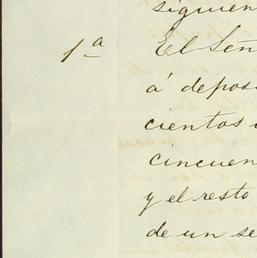 siguien
1ª El Señ
á deposi
cientos
cincuen
y el resto
de un se